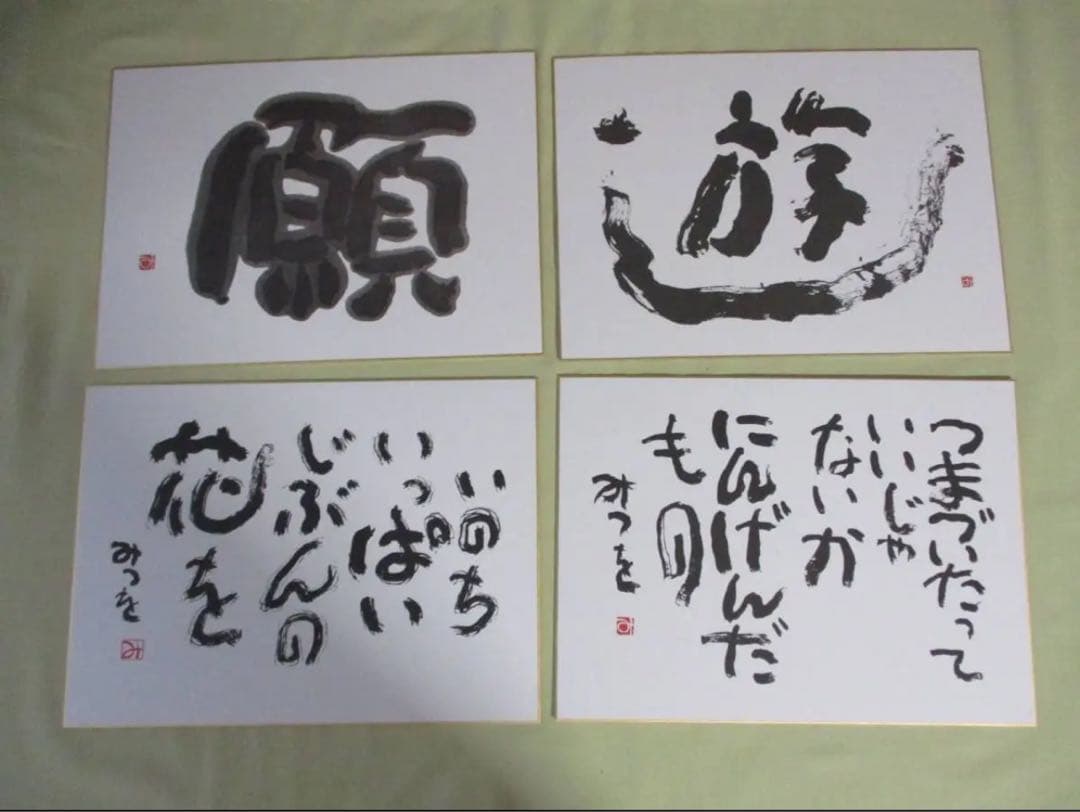 願
遊
いのち
いっぱい
じぶんの
花を
みつを
み
つまづいたって
いいじゃ
ないか
にんげんだ
もの
みつを